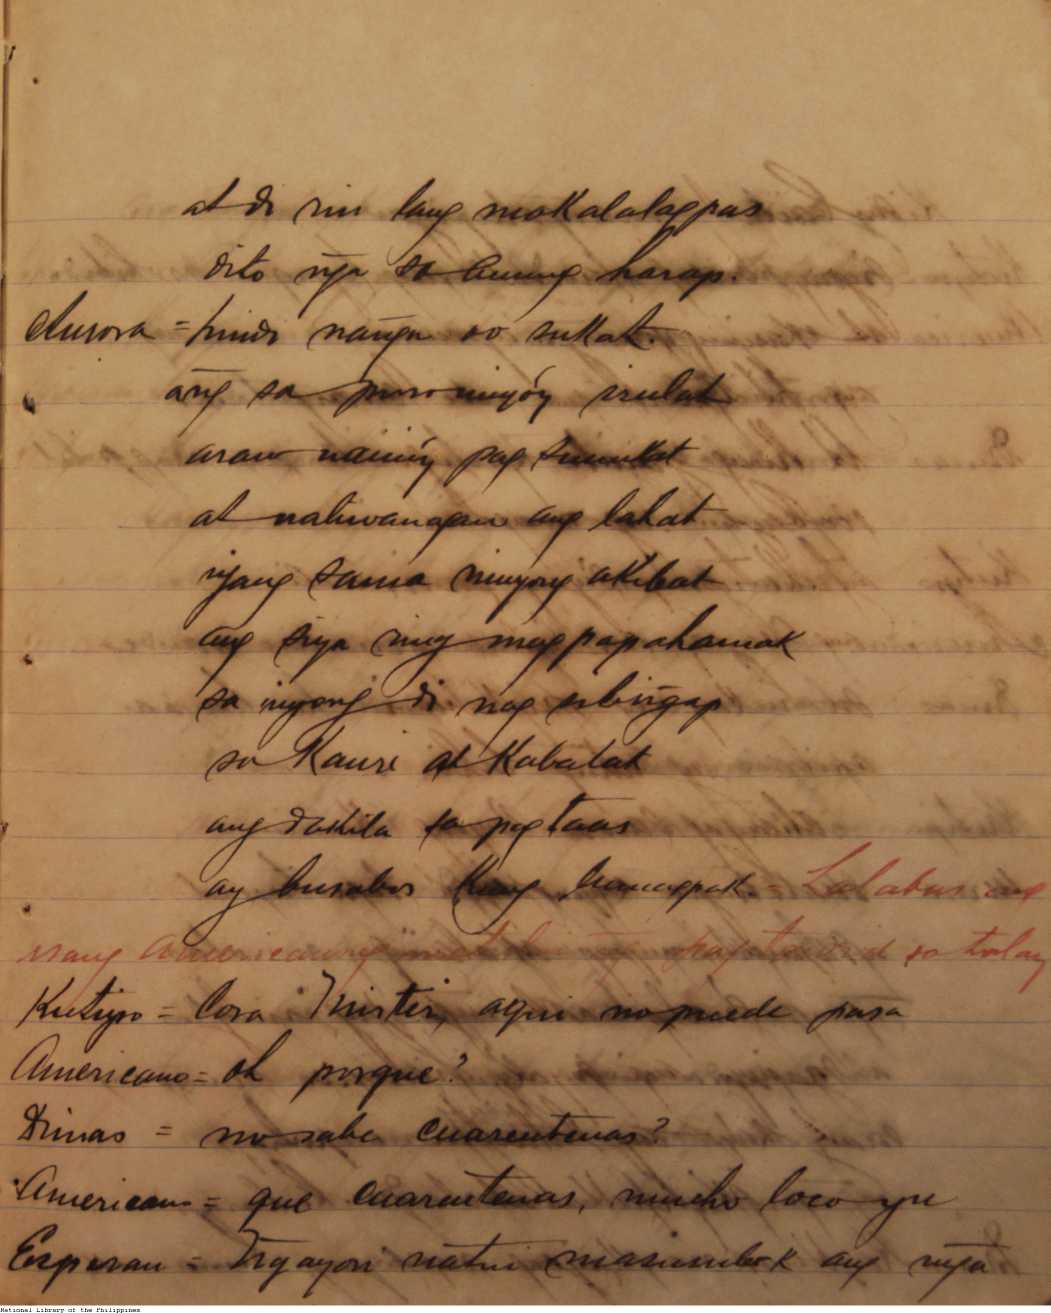 at di rin lang makalalagpas
dito ng̃a sa aming harap.
Aurora = hindi nang̃a oo sukat.
ang̃ sa puso ninyóy isulat
araw naiiuy pag sumikat
at naliwanagan ang lahat
niyang sama ninyong akibat
ang siya ring magpapahamak
sa inyong di nag subing̃ap
sa Kauri at Kabalat
ang dakila sa pagtaas
ay busabos Kung bumagsak. = Lalabas ang
isang Americanong pagtawid sa tulay
Kutigro = Cosa Mister, aqui no puede pasa
Americano = oh porque?
Dimas = no sabe cuarentenas?
Americano = que cuarentenas, mucho loco yu
Esperan = Ng̃ayon natin masusubok ang mg̃a
National Library of the Philippines